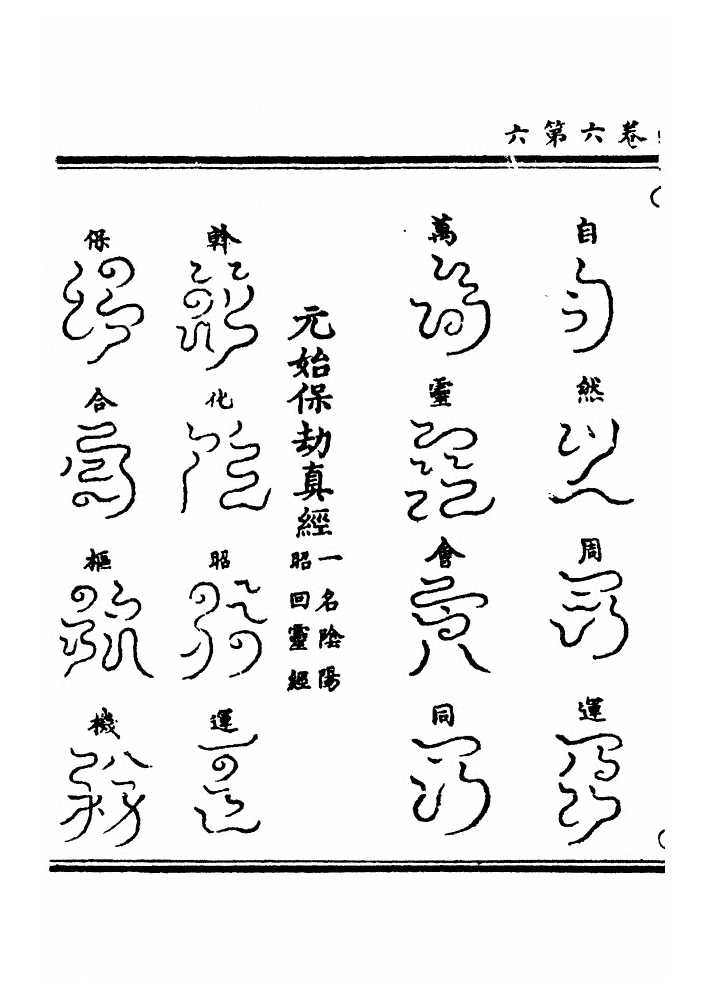 卷六第六
自然周運
萬靈會同
元始保劫真經
一名陰陽
昭回靈經
幹化昭運
保合樞機